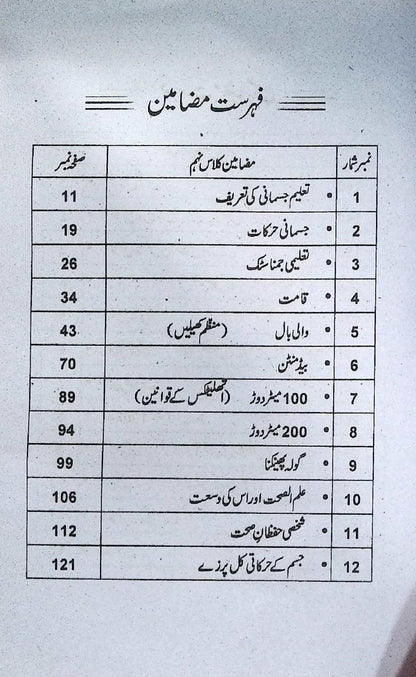 فہرست مضامین
نمبر شمار مضامین کلاس نہم صفحہ نمبر
1 • تعلیم جسمانی کی تعریف 11
2 • جسمانی حرکات 19
3 • تعلیمی جمناسٹک 26
4 • قامت 34
5 • والی بال (منظم کھیلیں) 43
6 • بیڈمنٹن 70
7 • 100 میٹر دوڑ (اتھلیٹکس کے قوانین) 89
8 • 200 میٹر دوڑ 94
9 • گولہ پھینکنا 99
10 • علم الصحت اور اس کی وسعت 106
11 • شخصی حفظانِ صحت 112
12 • جسم کے حرکاتی کل پرزے 121